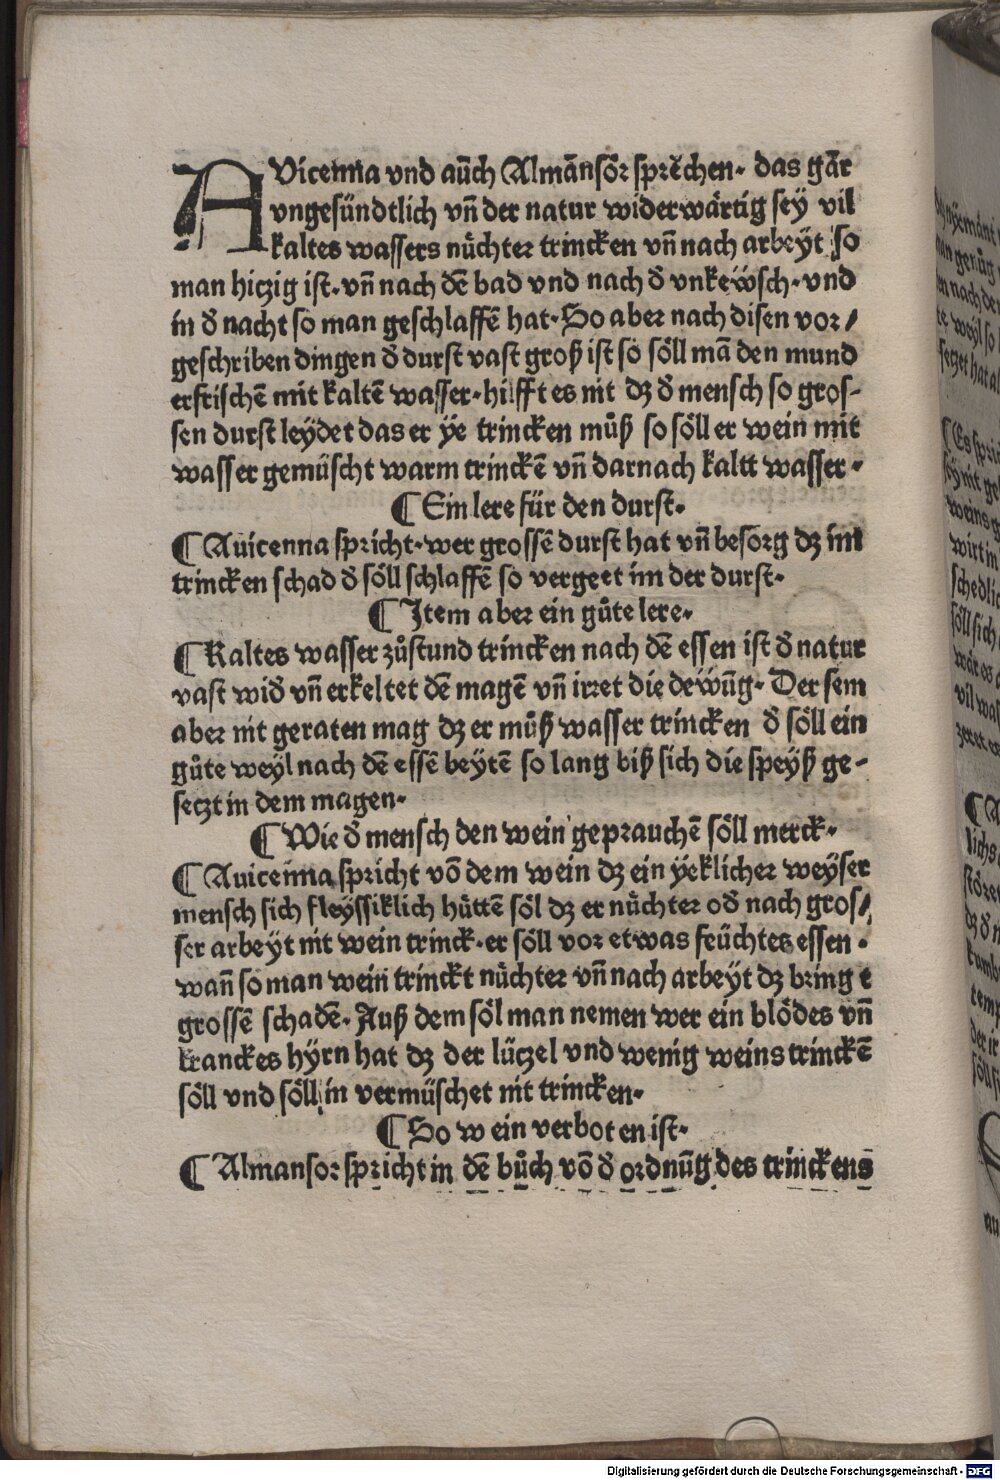 AVicenna vnd aūch Almānsöꝛ spꝛĕchen· das gār
vngesündtlich vn̄ der natur widerwärtig sey vil
kaltes wassers nu̇chteꝛ trincken vn̄ nach arbeyt so
man hiczig ist· vn̄ nach dē bad vnd nach đ vnkeẅsch· vnd
in đ nacht so man geschlaffē hat· So aber nach disen voꝛ/
geschriben dingen đ durst vast groß ist so söll mā den mund
erfrischē mit kaltē wasser· hilfft es nit dʒ đ mensch so gros-
sen durst leydet das er ÿe trincken můß so söll er wein mit
wasser gemüscht warm trinckē vn̄ darnach kaltt wasser·
¶ Ein lere für den durst·
¶ Auicenna spricht· wer grossē durst hat vn̄ besorg dʒ im
trincken schad đ söll schlaffē so vergeet im der durst·
¶ Item aber ein gůte lere·
¶ Kaltes wasser zůstund trincken nach dē essen ist đ natur
vast wiđ vn̄ erkeltet dē magē vn̄ irꝛet die dewūg· Der sem
aber nit geraten mag dʒ er můß wasser trincken đ söll ein
gůte weyl nach dē essē beytē so lang biß sich die speyß ge-
seczt in dem magen·
¶ Wie đ mensch den wein gepꝛauchē söll merck·
¶ Auicenna spricht vō dem wein dʒ ein yeklicheꝛ weyser
mensch sich fleyssiklich hüttē söl dʒ er nu̇chteꝛ ođ nach gros/
ser arbeyt nit wein trinck· er söll voꝛ etwas feüchtes essen·
wan̄ so man wein trinckt nüchteꝛ vn̄ nach arbeyt dʒ bꝛingt
grossē schadē· Auß dem söl man nemen wer ein blödes vn̄
kranckes hyrn hat dʒ der lüczel vnd wenig weins trinckē
söll vnd söll in vermüschet nit trincken·
¶ So wein verboten ist·
¶ Almansoꝛ spricht in dē bůch vō đ oꝛdnūg des trinckens
Digitalisierung gefördert durch die Deutsche Forschungsgemeinschaft - DFG